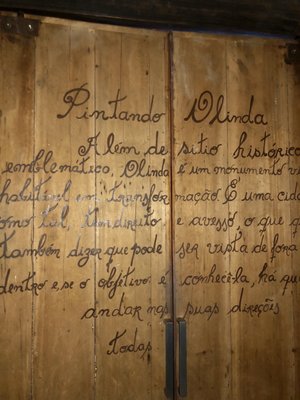 Pintando Olinda
Além de sitio históric
emblemático, Olinda é um monumento v
habitável em transfor mação. É uma cida
omo tal, tem direito e avesso, o que q
também dizer que pode ser vista de fora
dentro e se o objetivo é conhecê-la, há que
andar nas suas direções
todas